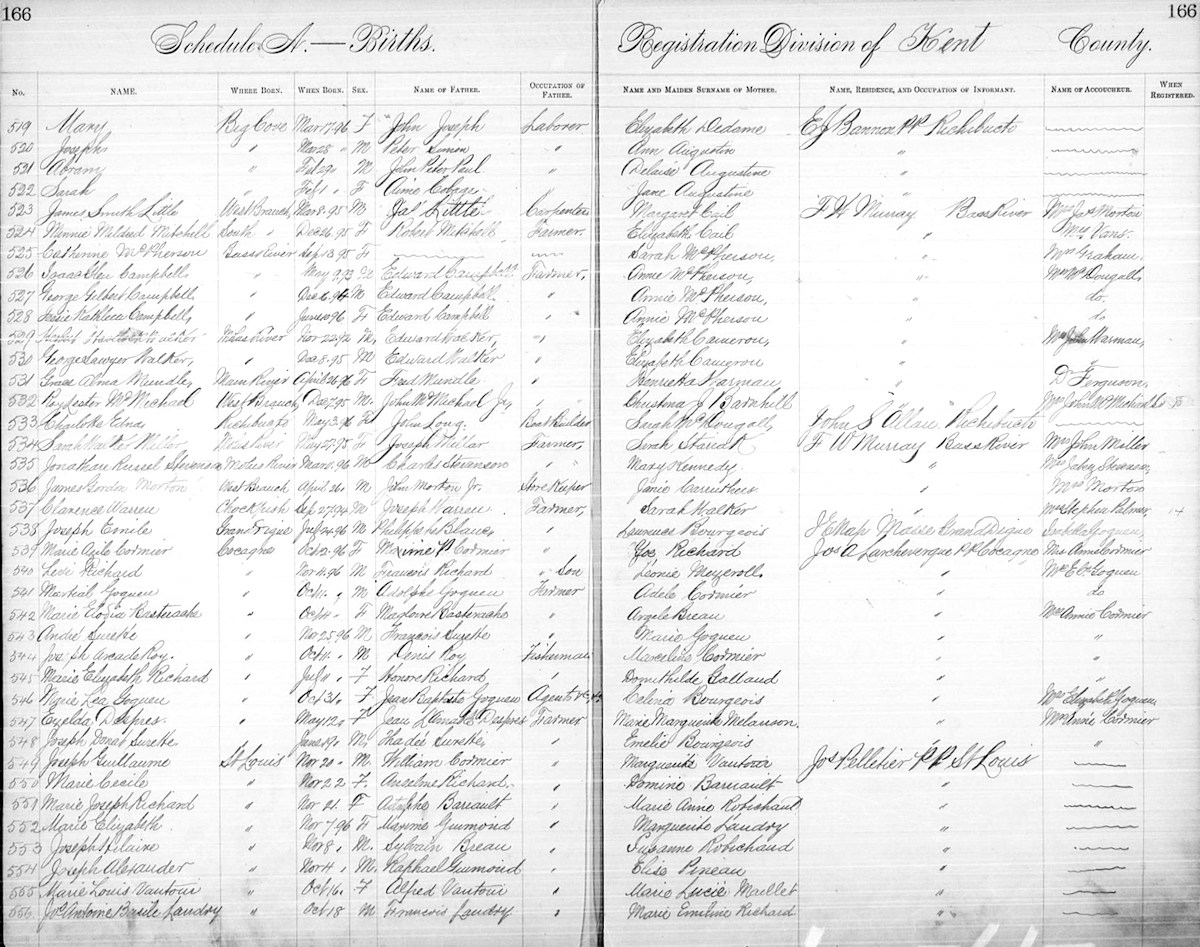 166 166
Schedule A.—Births. Registration Division of Kent County.
No. NAME. WHERE BORN. WHEN BORN. SEX. NAME OF FATHER. OCCUPATION OF FATHER. NAME AND MAIDEN SURNAME OF MOTHER. NAME, RESIDENCE, AND OCCUPATION OF INFORMANT. NAME OF ACCOUCHEUR. WHEN REGISTERED.
519 Mary Big Cove Mar 17, 96 F John Joseph Laborer Elizabeth Dedame E J Bannon PP Richibucto
520 Joseph " Mar 28 " M Peter Simon " Ann Augustin "
521 Abram " Feb 29 " M John Peter Paul " Augustine "
522 Sarah " Feb 1 " F " Jane Augustine "
523 James Smith Little West Branch Mar 8, 95 M Jas Little Carpenter Margaret Cail F W Murray Bass River Mrs Jas Morton
524 Minnie Mildred Mitchell South " Dec 26, 95 F Robert Mitchell Farmer Elizabeth Cail " Mrs
525 Catherine McPherson Bass River Sep 13, 95 F Sarah McPherson, " Mrs Graham
526 Isaac Campbell, " May 9, 93 Edward Campbell Farmer, Annie McPherson, " Mrs McDougall,
527 George Gilbert Campbell, " Dec 6, 94 M Edward Campbell " Annie McPherson, " do.
528 Kathleen Campbell, " June 10 96 F Edward Campbell " Annie McPherson " do
529 Bass River Nov 22, 92 M, Edward Walker, " Elizabeth Cameron, " Mrs John Warman,
530 George Sawyer Walker, " Dec 8, 95 M Edward Walker " Elizabeth Cameron " "
531 Grace Alma Mundle, Main River April 26 96 F Fred Mundle " Henrietta Warman " Dr Ferguson,
532 Roy Lester McMichael West Branch Dec 7, 95 M. John McMichael Jr, " Christena J Barnhill " Mrs John McMichael
533 Charlotte Edna Richibucto May 3, 96 F John Long. Boat Builder Sarah McDougall, John S Allan Richibucto
534 Sarah Millar Bass River May 27, 95 F Joseph Millar Farmer, Sarah F W Murray Bass River Mrs John Miller
535 Jonathan Russel Stevenson Molus River Mar 11, 96 M Charles Stevenson " Mary Kennedy, " Mrs Stevenson,
536 James Gordon Morton West Branch April 26, " M John Morton Jr. Store Keeper Janie Carruthers " Mrs Morton
537 Clarence Warren Chockfish Sep 27, 94 M Joseph Warren. Farmer, Sarah Walker " Mrs Stephen Palmer
538 Joseph Emile Grand Digue July 24, 96 M Philippe LeBlanc " Laurence Bourgeois Grand Digue Goguen,
539 Marie Cormier Cocagne Oct 2, 96 F Cormier " Richard Jos A Larcheveque PP Cocagne, Mrs Anne Cormier
540 Levi Richard " Nov 4, 96 M Francois Richard " Son Léonie " Goguen
541 Martial Goguen " Oct " M Adolphe Goguen Farmer Adele Cormier " do
542 Marie Elodia Bastarache " Oct " F Bastarache " Argele Breau " Mrs Annie Cormier
543 André Surette " Nov 25, 96 M Francois Surette " Marie Goguen " "
544 Joseph Arcade Roy. " Oct " M Denis Roy Fisherman Marceline Cormier " "
545 Marie Elizabeth Richard " July " F Honore Richard " Domithilde Galland " "
546 Lea Goguen " Oct 31, " F Jean Baptiste Goguen Agent Celina Bourgeois " Mrs Elizabeth Goguen,
547 Despres. " May 12 " F Jean Despres Farmer Marie Marguerite Melanson. " Mrs Annie Cormier
548 Joseph Donat Surette " June 19 " M. Thadée Surette, " Emelie Bourgeois " "
549 Joseph Guillaume St Louis Nov 20 " M. William Cormier " Marguerite Vautour Jos Pelletier PP St Louis
550 Marie Cecile " Nov 22 " F. Anselme Richard. " Domine Barriault "
551 Marie Joseph Richard " Nov 21. " F Barriault " Marie Anne Robichaud "
552 Marie Elizabeth. " Nov 7, 96 F Maxime Guimond " Marguerite Landry "
553 Joseph Hilaire " Nov 8, " M. Sylvain Breau " Susanne Robichaud "
554 Joseph Alexander " Nov 4 " M. Raphael Guimond " Elise Pineau "
555 Marie Louis Vautour " Oct 16 " F Alfred Vautour " Marie Lucie Maillet "
556 Jos Antoine Landry " Oct 18 M Francois Landry " Marie Emeline Richard "